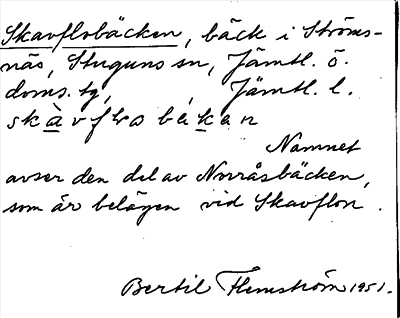 Skavflobäcken, bäck i Ströms-
näs, Stuguns sn, Jämtl. ö.
doms. tg, Jämtl. l.
skàvflos bákan
Namnet
avser den del av Norråsbäcken,
som är belägen vid Skavflon.
Bertil Flemström 1951.